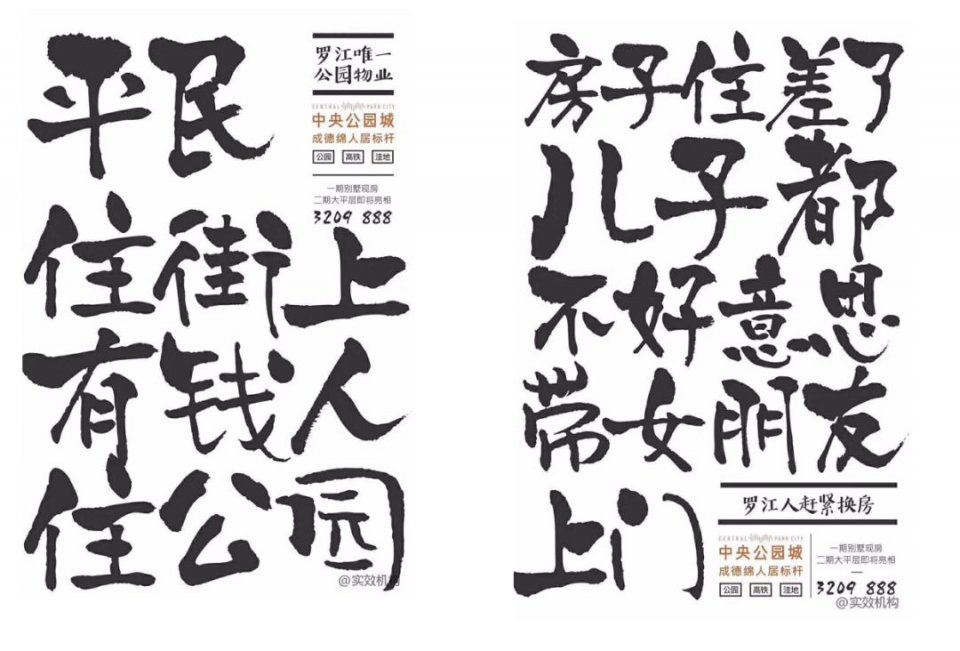 平民
住街上
有钱人
住公园
罗江唯一
公园物业
CENTRAL PARK CITY
中央公园城
成德绵人居标杆
公园 高铁 洼地
一期别墅现房
二期大平层即将亮相
3209 888
@实效机构
房子住差了
儿子都
不好意思
带女朋友
上门
罗江人赶紧换房
CENTRAL PARK CITY
中央公园城
成德绵人居标杆
公园 高铁 洼地
一期别墅现房
二期大平层即将亮相
3209 888
@实效机构